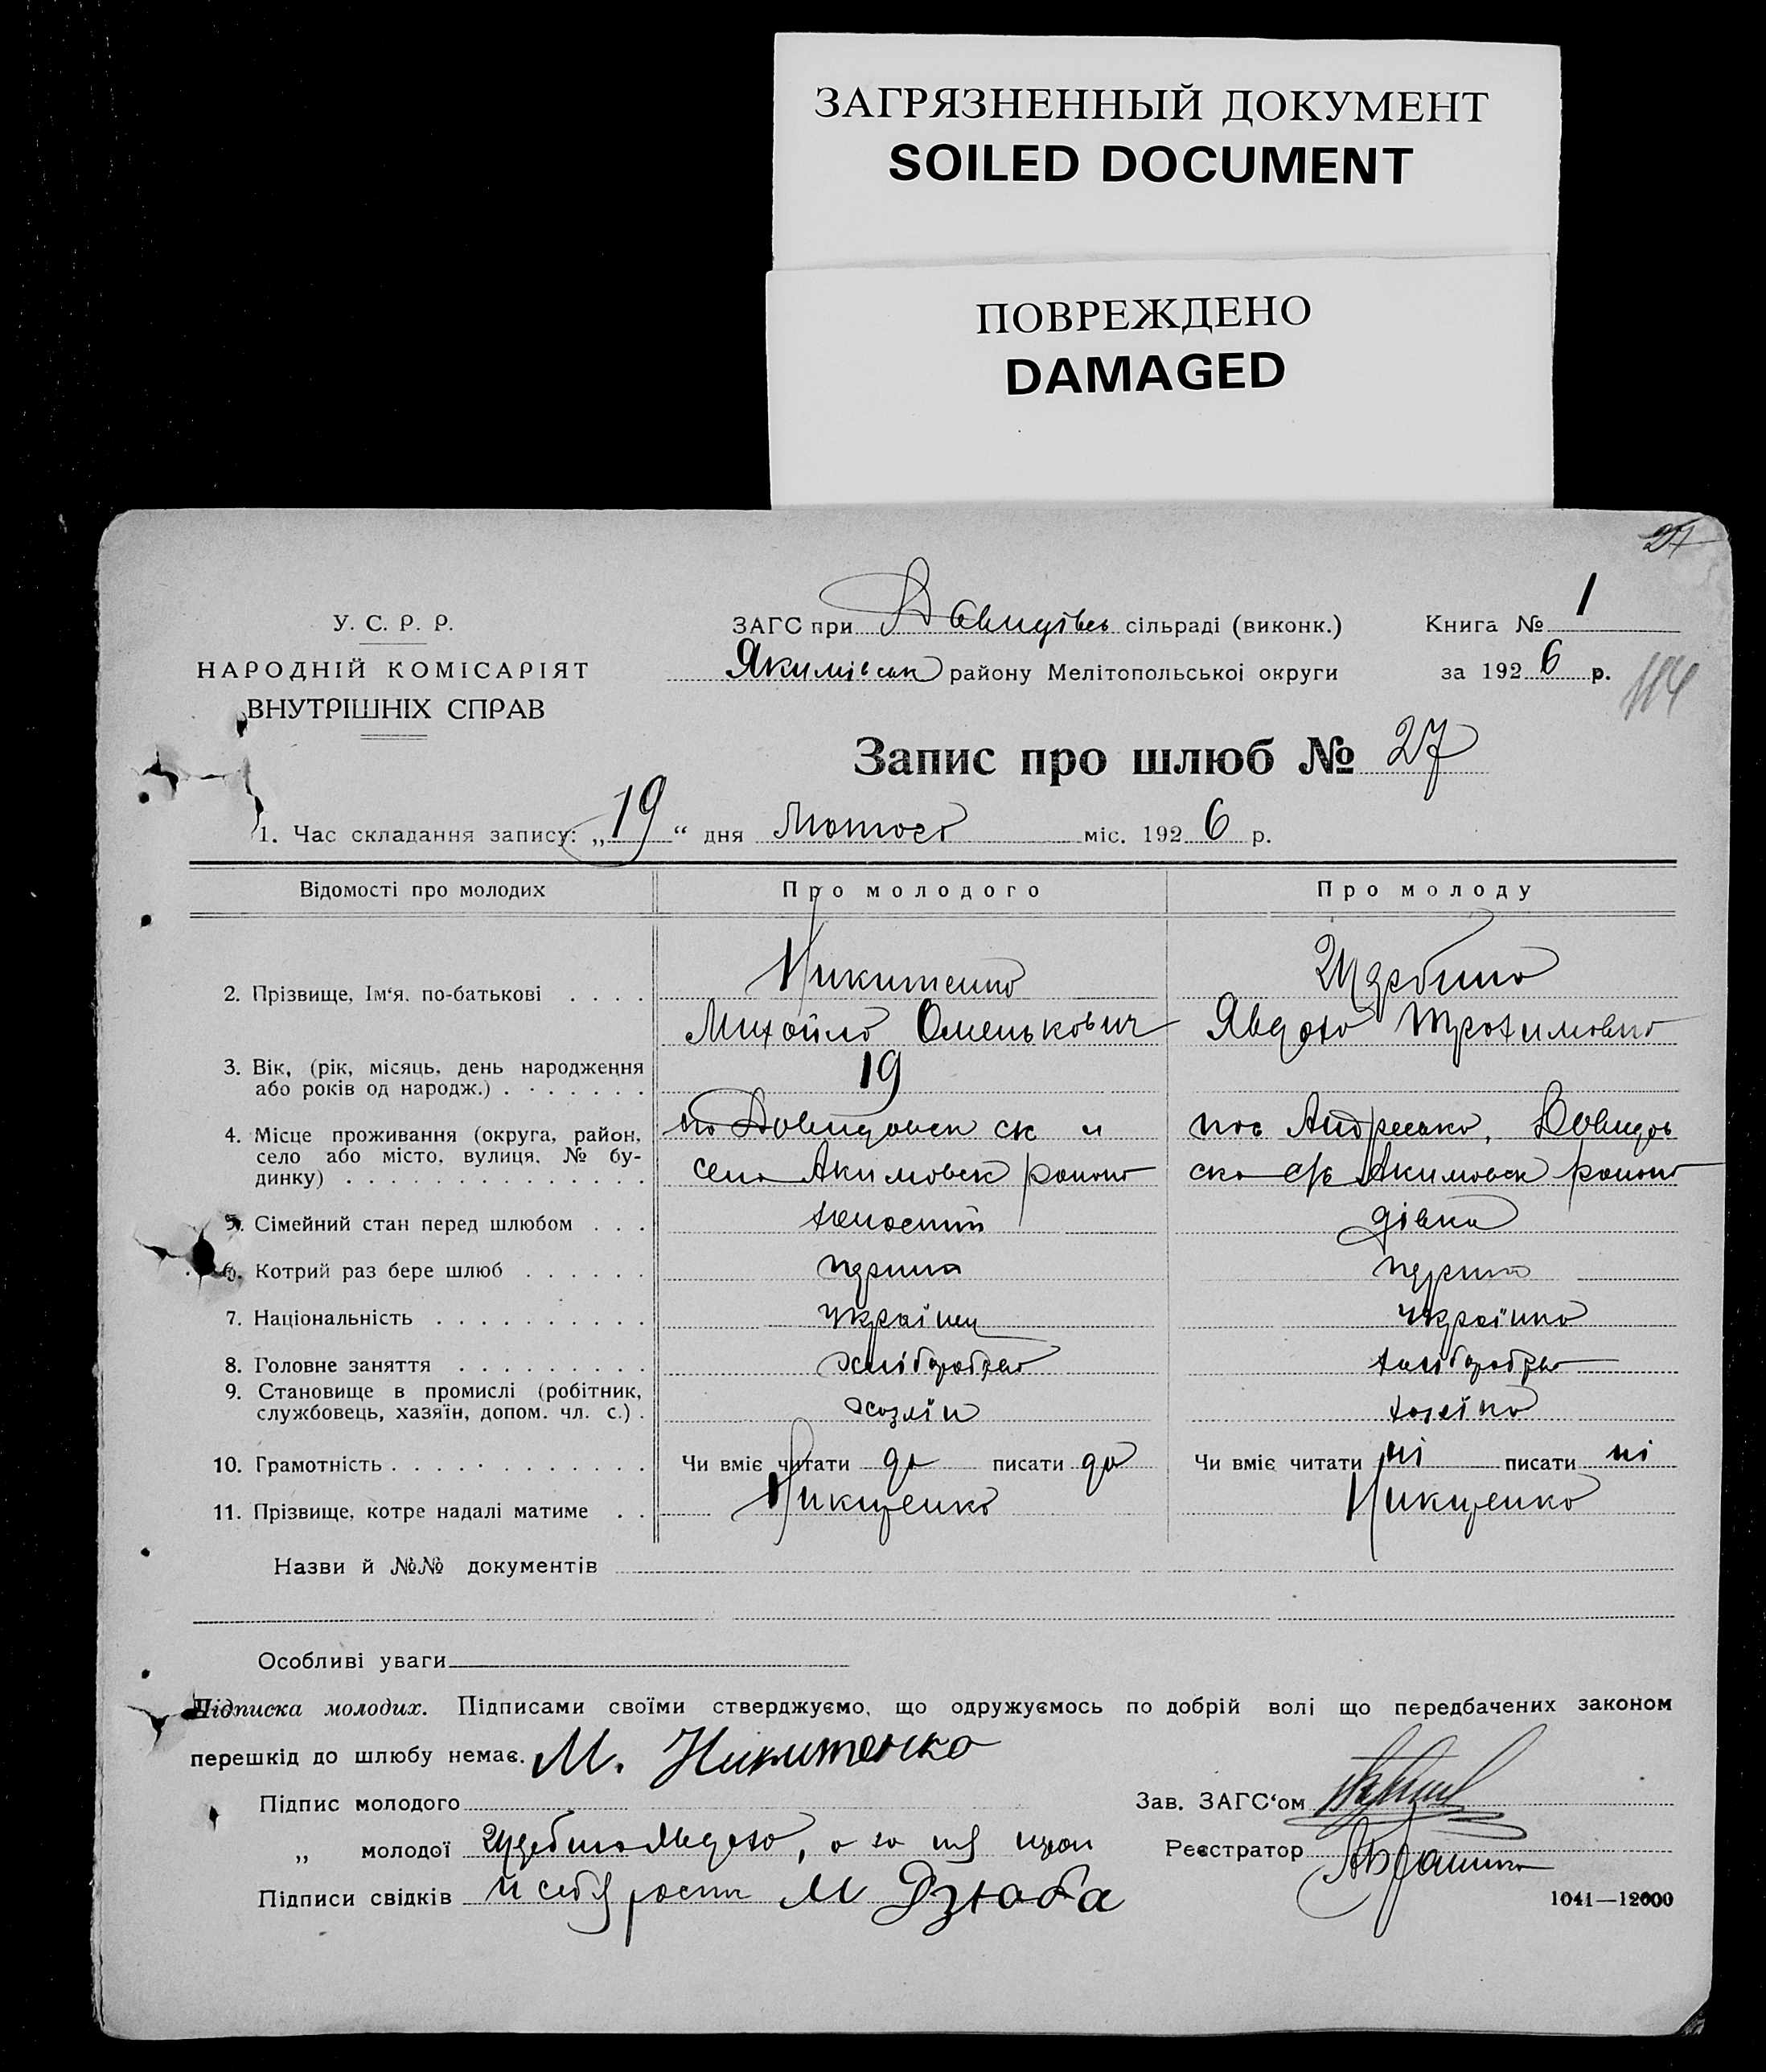 ЗАГРЯЗНЕННЫЙ ДОКУМЕНТ
SOILED DOCUMENT
ПОВРЕЖДЕНО
DAMAGED
27
У. С. Р. Р.
НАРОДНІЙ КОМІСАРІЯТ
ВНУТРІШНІХ СПРАВ
ЗАГС при Давидівсь сільраді (виконк.)
Якимівськ району Мелітопольської округи
Книга № 1
за 1926 р.
Запис про шлюб № 27
1. Час складання запису: „19“ дня Лютого міс. 1926 р.
Відомості про молодих Про молодого Про молоду
2. Прізвище, Ім'я, по-батькові . . . . Никитенко Щербина
Михайло Оменькович Явдоха Трохимовна
3. Вік, (рік, місяць, день народження
або років од народж.) . . . . . . . 19
4. Місце проживання (округа, район,
село або місто, вулиця, № будинку) . . . . . . . . . . . . . .
Давидовск ск
село Акимовск району
пос Андреевка, Давидов
ско с/р Акимовск району
5. Сімейний стан перед шлюбом . . . холостий дівка
6. Котрий раз бере шлюб . . . . . . перший перша
7. Національність . . . . . . . . . . українец українка
8. Головне заняття . . . . . . . . . хліборобство хліборобство
9. Становище в промислі (робітник,
службовець, хазяїн, допом. чл. с.) . хозяїн хозяїка
10. Грамотність . . . . . . . . . . . . Чи вміє читати да писати да Чи вміє читати ні писати ні
11. Прізвище, котре надалі матиме . . Никитенко Никитенко
Назви й №№ документів
Особливі уваги
Підписка молодих. Підписами своїми стверджуємо, що одружуємось по добрій волі що передбачених законом
перешкід до шлюбу немає. М. Никитенко
Підпис молодого
Зав. ЗАГС'ом
„ молодої Щербина Явдоха, а за
Реєстратор
Підписи свідків М Дзюба
1041—12000